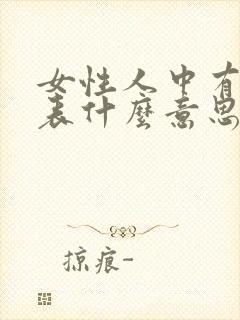 女性人中有
表什麼意思
掠痕-